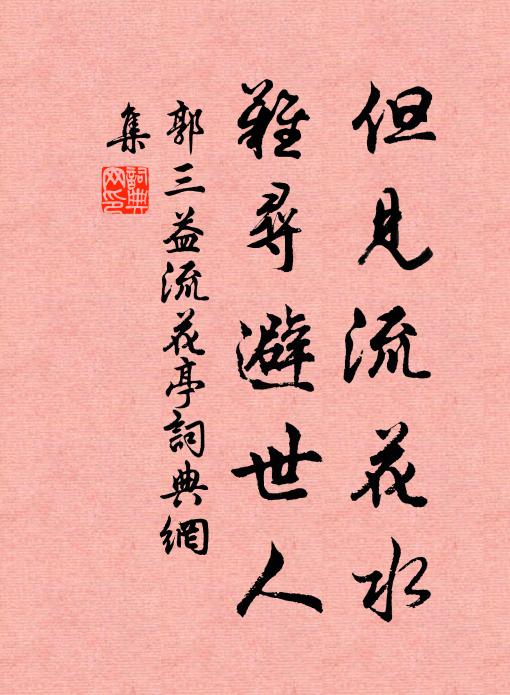 但見流花水
難尋避世人
郭三益流花亭詞典網
集
詞典
网印